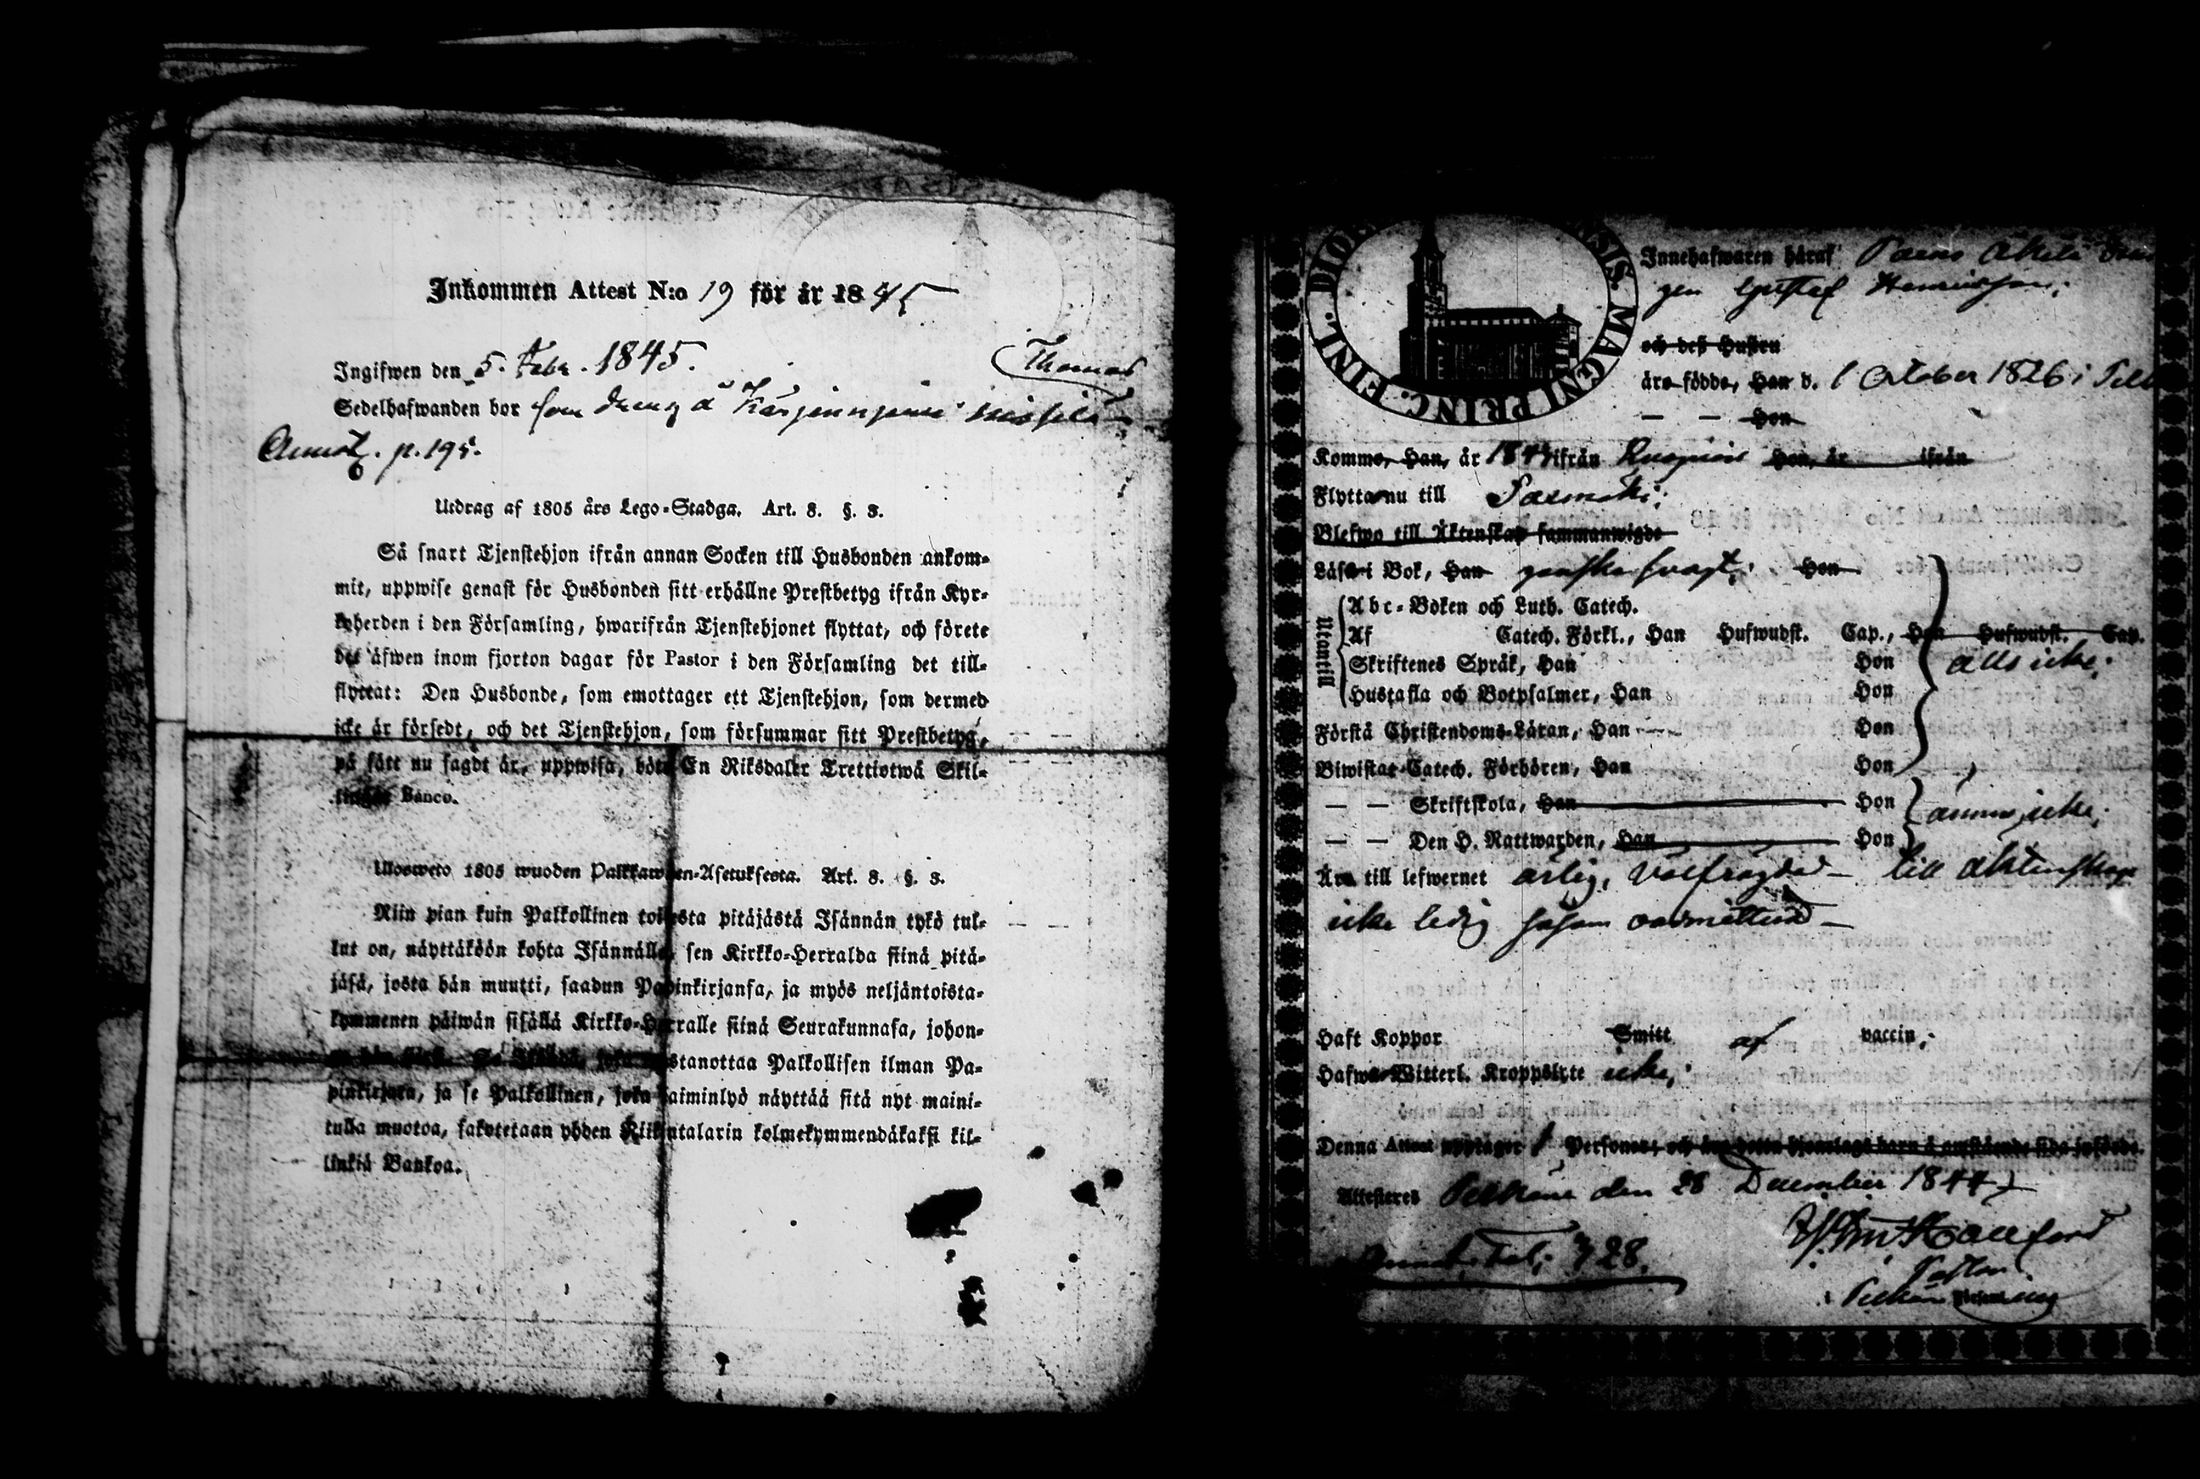 Inkommen Attest N:o 19 för år 1845
Ingifwen den 5. Febr. 1845.
Thomas
Sedelhafwanden bor som dreng å
Annot. p. 195.
Utdrag af 1805 års Lego-Stadga. Art. 8. §. 3.
Så snart Tjenstehjon ifrån annan Socken till Husbonden ankom-
mit, uppwise genast för Husbonden sitt erhållne Prestbetyg ifrån Kyr-
koherden i den Församling, hwarifrån Tjenstehjonet flyttat, och förete
det äfwen inom fjorton dagar för Pastor i den Församling det till-
flyttat: Den Husbonde, som emottager ett Tjenstehjon, som dermed
icke är försedt, och det Tjenstehjon, som försummar sitt Prestbetyg,
på sätt nu sagdt är, uppwisa, böte En Riksdaler Trettiotwå Skil-
lingar Banco.
Ulosweto 1805 wuoden Palkkawäen-Asetuksesta. Art. 8. §. 3.
Niin pian kuin Palkollinen toisesta pitäjästä Isännän tykö tul-
lut on, näyttäköön kohta Isännällen sen Kirkko-Herralda siinä pitä-
jäsä, josta hän muutti, saadun Papinkirjansa, ja myös neljäntoista-
kymmenen päiwän sisällä Kirkko-Herralle siinä Seurakunnasa, johon-
wastanottaa Palkollisen ilman Pa-
pinkirjata, ja se Palkollinen, joka laiminlyö näyttää sitä nyt maini-
tulla muotoa, sakotetaan yhden Riikintalarin kolmekymmendäkaksi kil-
linkiä Bankoa.
DIOE NSIS. MAGNI PRINC. FINL.
Innehafwaren häraf
gen Gustaf Henricsson;
och deß Hustru
äro födde, Han d. 1 October 1826 i
— — Hon
Kommo, Han, år 1844 ifrån Hon, år ifrån
Flytta nu till
Blefwo till Äktenskap sammanwigde
Läsa i Bok, Han ganska svagt; Hon
Utantill
Abc-Boken och Luth. Catech.
Af Catech. Förkl., Han Hufwudst. Cap., Hon Hufwudst. Cap.
Skriftenes Språk, Han Hon alls icke;
Hustafla och Botpsalmer, Han Hon
Förstå Christendoms-Läran, Han Hon
Biwistat Catech. Förhören, Han Hon
— — Skriftskola, Han Hon ännu icke;
— — Den H. Nattwarden, Han Hon
Äro till lefwernet ärlig, välfrägdad — till äktenskap
icke ledig såsom oadmitterad —
Haft Koppor Smitt af vaccin;
Hafwa Witterl. Kroppslyte icke;
Denna Attest upptager 1 Personer, och äro deras hjonelags barn å omstående sida införde.
Attesteres Pelkäne den 28 December 1844
Fol: 728.
Pastor